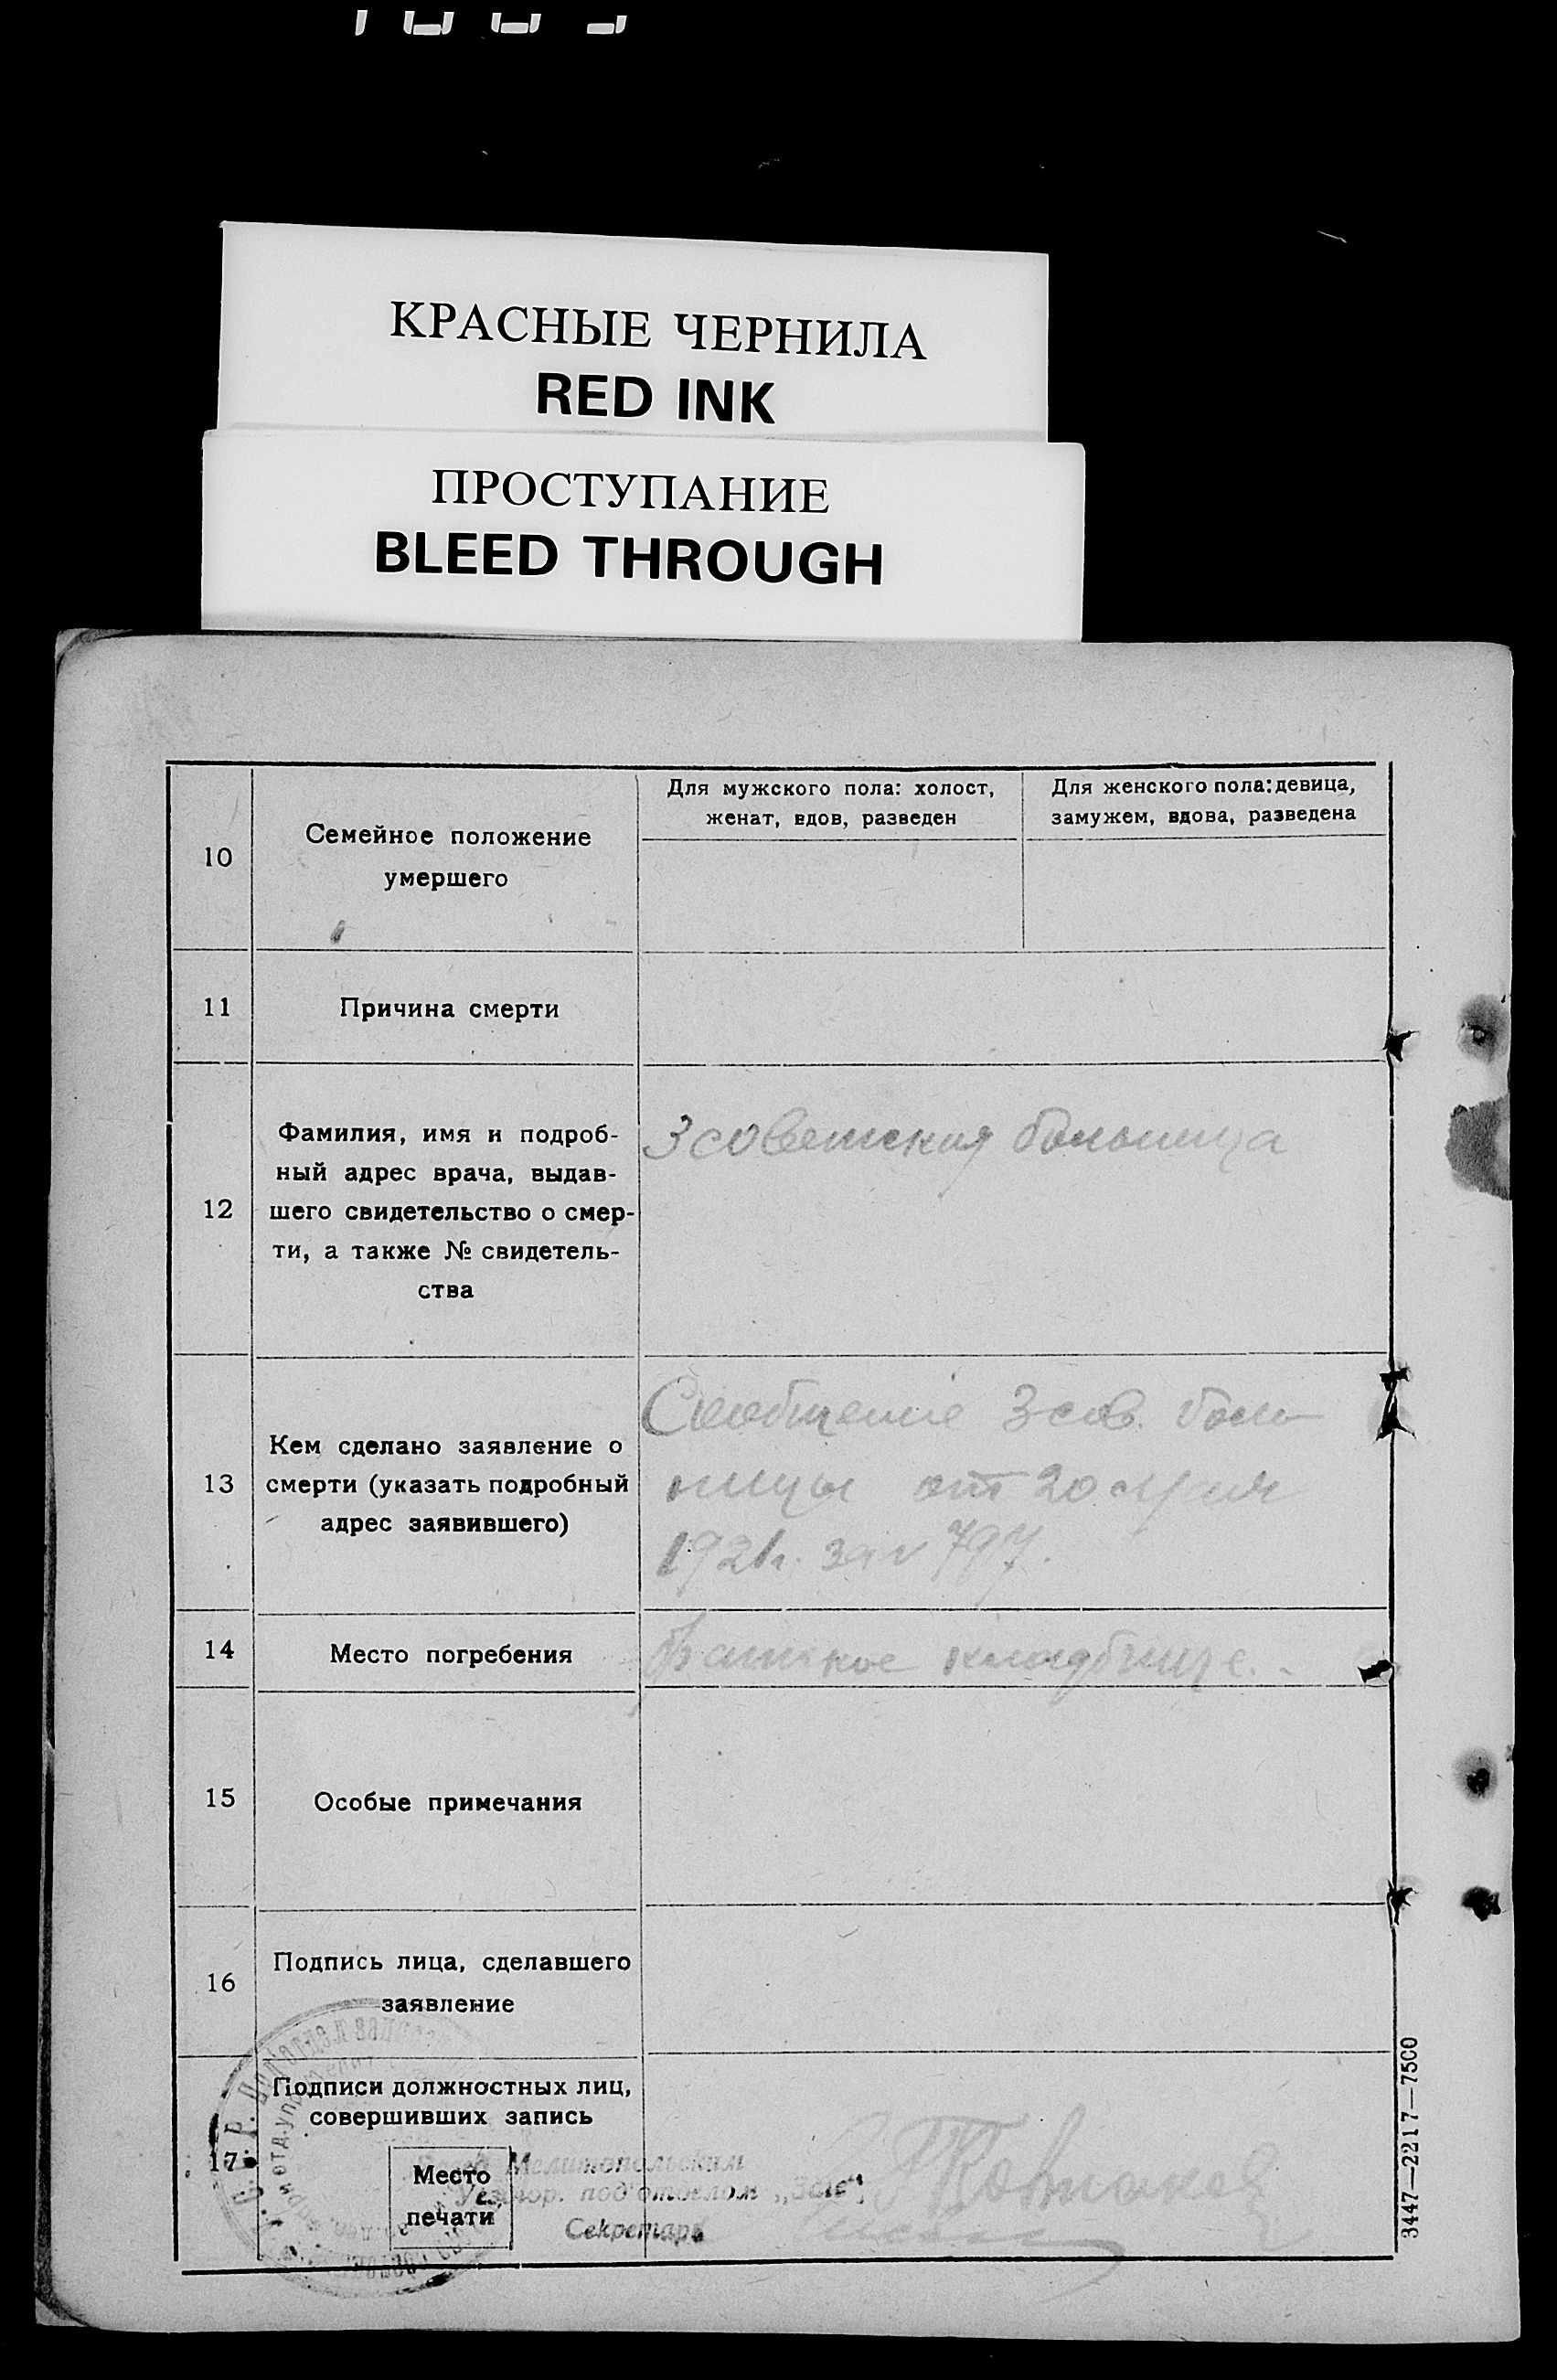 КРАСНЫЕ ЧЕРНИЛА
RED INK
ПРОСТУПАНИЕ
BLEED THROUGH
10
Семейное положение
умершего
Для мужского пола: холост,
женат, вдов, разведен
Для женского пола: девица,
замужем, вдова, разведена
11
Причина смерти
12
Фамилия, имя и подроб-
ный адрес врача, выдав-
шего свидетельство о смер-
ти, а также № свидетель-
ства
3 советская больница
13
Кем сделано заявление о
смерти (указать подробный
адрес заявившего)
Сообщение 3 сов. боль
ницы от 20
1921г. за № 797.
14
Место погребения
Братское кладбище.
15
Особые примечания
16
Подпись лица, сделавшего
заявление
17
Подписи должностных лиц,
совершивших запись
Место
печати
Мелитопольским
под'отделом „Загс"
Секретарь
3447—2217—7500